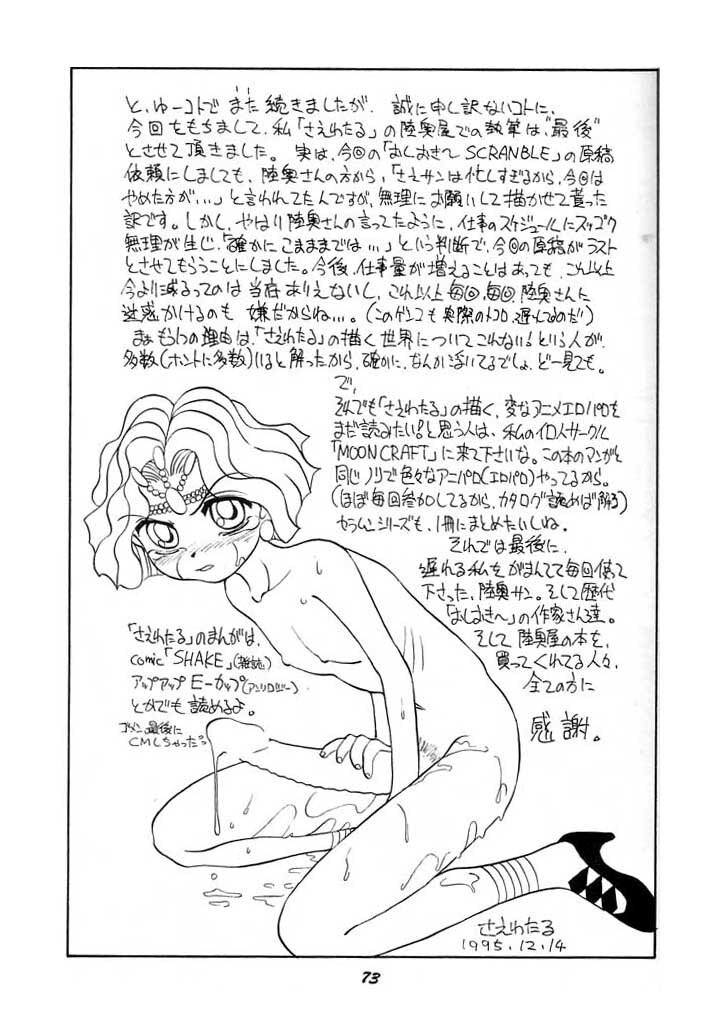 と、ゆーコトで また 続きましたが、誠に申し訳ないコトに、
今回をもちまして、私「さえわたる」の陸奥屋での執筆は“最後”
とさせて頂きました。 実は、今回の「おしおき〜 SCRANBLE」の原稿
依頼にしましても、陸奥さんの方から、「さえサンは忙しすぎるから、今回は
やめた方が…」と言われてたんですが、無理にお願いして描かせて貰った
訳です。しかし、やはり陸奥さんの言ってたように、仕事のスケジュールに
無理が生じ、「確かにこまままでは…」という判断で、今回の原稿がラスト
とさせてもらうことにしました。今後、仕事量が増えることはあっても、これ以上
今より減るってのは当座ありえないし、これ以上毎回、毎回、陸奥さんに
迷惑かけるのも 嫌だからね…。(このゲンコも実際のトコロ、遅れてるのだ)
まぁもう1つの理由は、「さえわたる」の描く世界についてこれない!という人が、
多数(ホントに多数)いると解ったから、確かに、なんか浮いてるでしょ、ど一見ても。
で、
それでも「さえわたる」の描く、変なアニメエロパロを
まだ読みたい!と思う人は、私の個人サークル
「MOON CRAFT」に来て下さいな。この本のマンガと
同じノリで色々なアニパロ(エロパロ)やってるから。
(ほぼ毎回参加してるから、カタログ読めば解る)
セラムンシリーズも、1冊にまとめたいしね。
それでは最後に、
遅れる私をがまんして毎回使って
下さった、陸奥サン。そして歴代
「おしおき〜」の作家さん達。
そして陸奥屋の本を、
買ってくれてる人々、
全ての方に
感謝。
「さえわたる」のまんがは、
comic「SHAKE」(雑誌)
アップアップ E-カップ(アンソロジー)
とかでも読めるよ。
ゴメン、最後に
CMしちゃった
さえわたる
1995.12.14
73